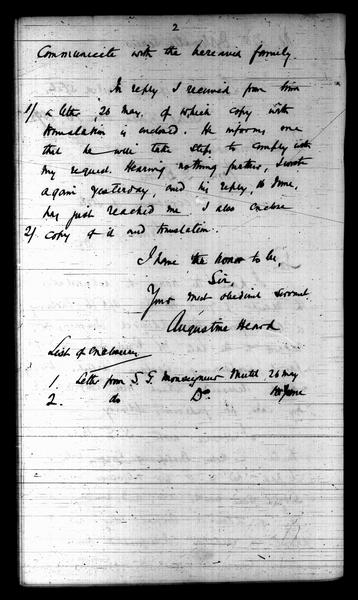 2
Communicate with the bereaved family.
In reply I received from him
1/ a letter, 26 May, of which copy with
translation is enclosed. He informs me
that he will take steps to comply with
my request. Hearing nothing further, I wrote
again yesterday, and his reply, 10 June,
has just reached me. I also enclose
2/ copy of it and translation.
I have the honor to be,
Sir,
Your most obedient servant
Augustine Heard
List of enclosures
1. Letter from S. G. Monseigneur Mutel 26 May
2. do Do 10 June